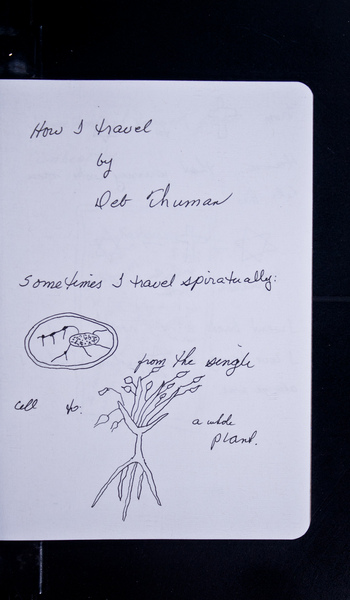 How I travel
by
Deb Thuman
Sometimes I travel spiratually:
from the single
cell to:
a whole
plant.